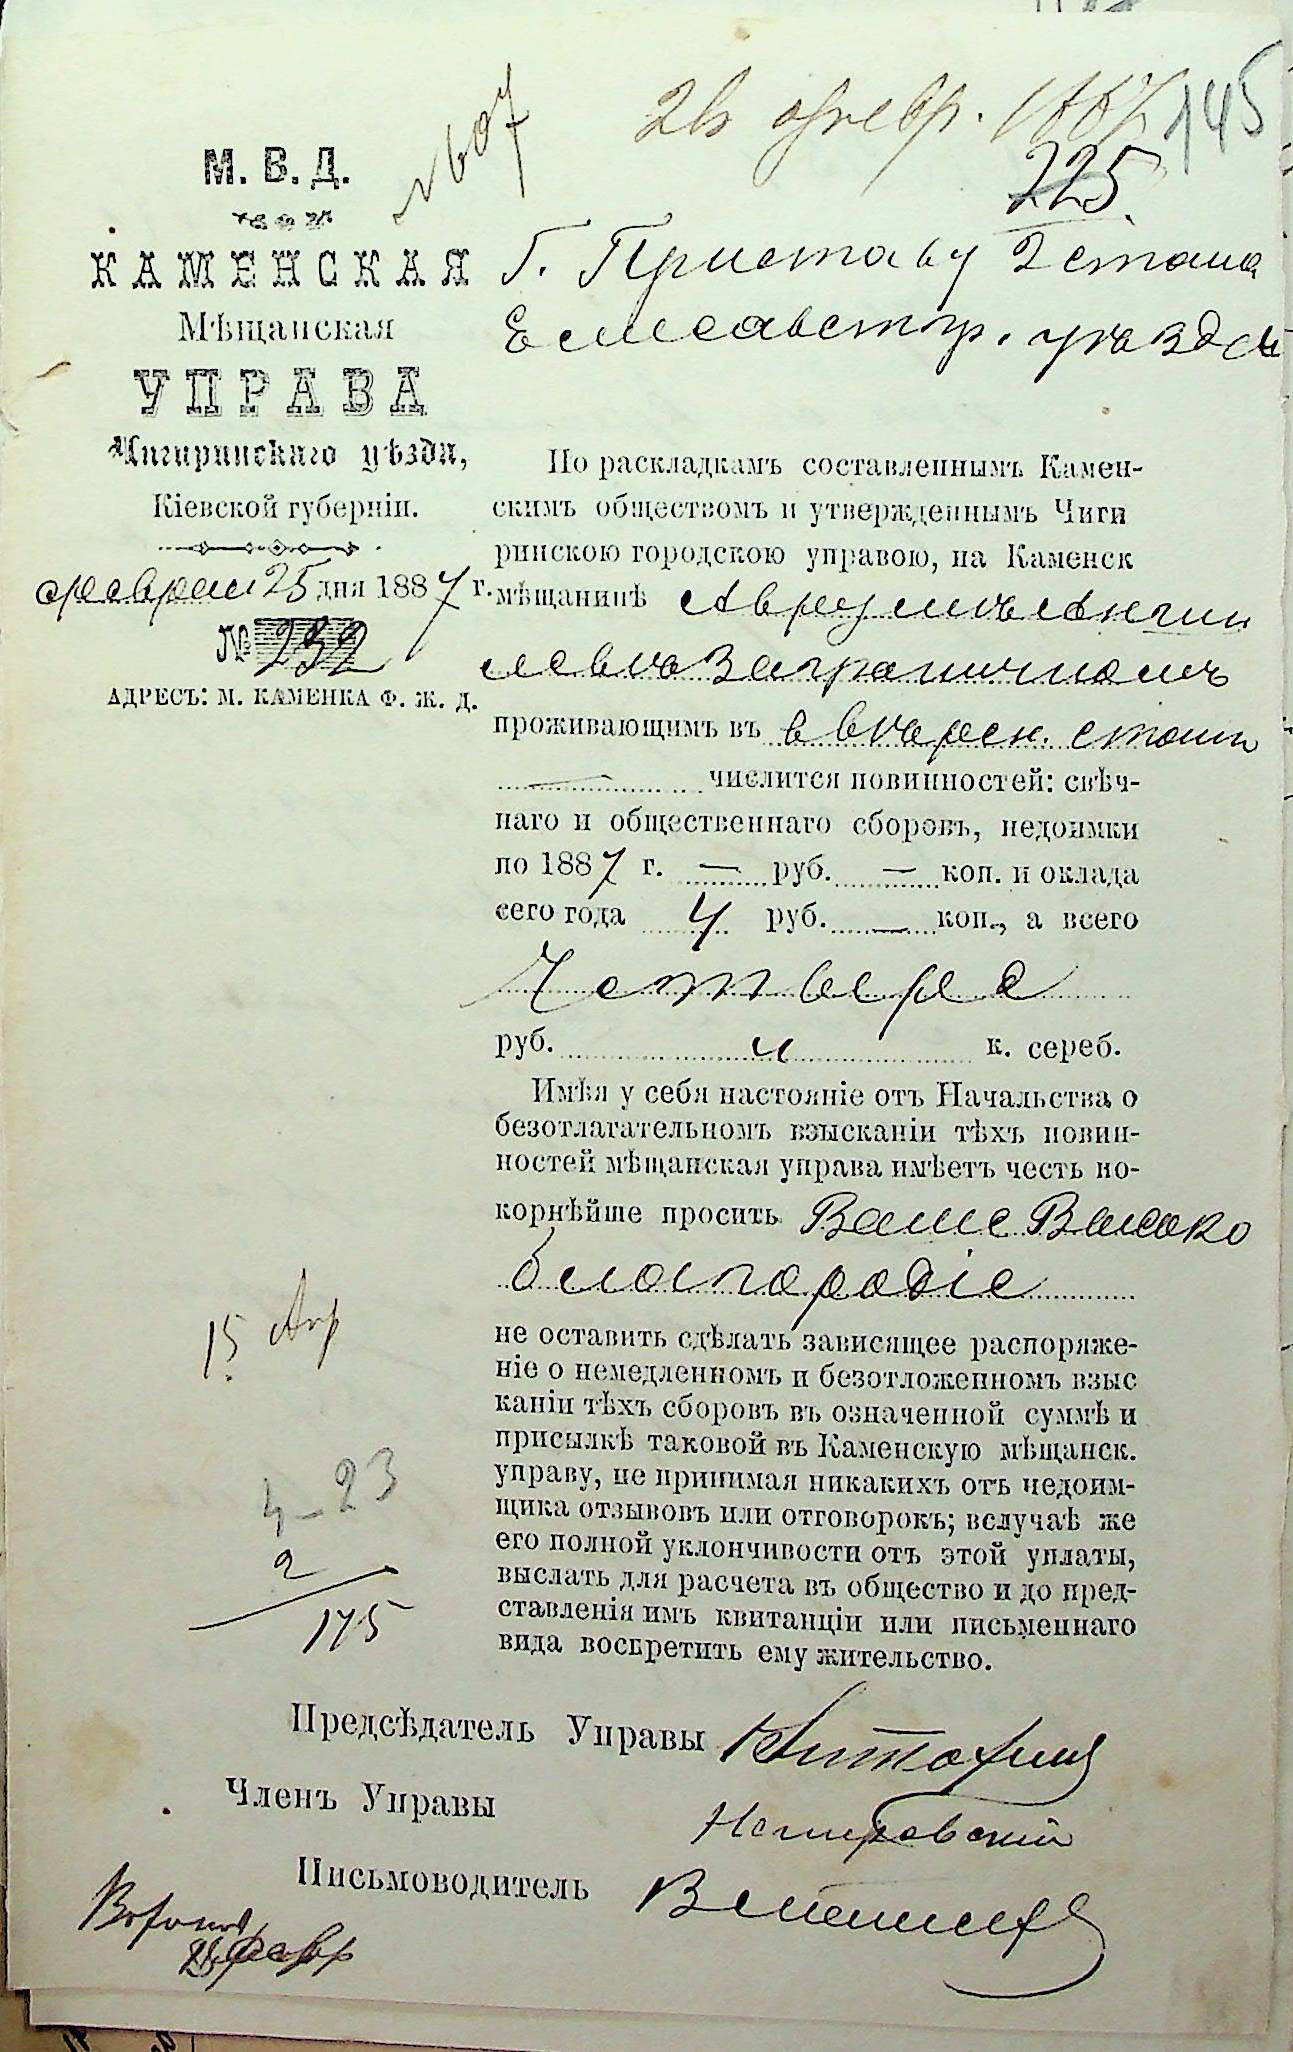 145
225.
№ 607
М. В. Д.
КАМЕНСКАЯ
Мѣщанская
УПРАВА
Чигиринскаго уѣзда,
Кіевской губерніи.
февраля 25 дня 1887 г.
№ 232
АДРЕСЪ: М. КАМЕНКА Ф. Ж. Д.
Г. Приставу 2 стана
Елисаветгр. уѣзда
По раскладкамъ составленнымъ Камен-
скимъ обществомъ и утвержденнымъ Чиги
ринскою городскою управою, на Каменск
мѣщанинѣ
Заграничномъ
проживающимъ въ
числится повинностей: свѣч-
наго и общественнаго сборовъ, недоимки
по 1887 г. — руб. — коп. и оклада
сего года 4 руб. — коп., а всего
Четыре
руб. к. сереб.
Имѣя у себя настояніе отъ Начальства о
безотлагательномъ взысканіи тѣхъ повин-
ностей мѣщанская управа имѣетъ честь по-
корнѣйше просить Ваше Высоко
благородіе
не оставить сдѣлать зависящее распоряже-
ніе о немедленномъ и безотложенномъ взыс
каніи тѣхъ сборовъ въ означенной суммѣ и
присылкѣ таковой въ Каменскую мѣщанск.
управу, не принимая никакихъ отъ недоим-
щика отзывовъ или отговорокъ; вслучаѣ же
его полной уклончивости отъ этой уплаты,
выслать для расчета въ общество и до пред-
ставленія имъ квитанціи или письменнаго
вида воспретить ему жительство.
15 Апр
4-23
2
175
Предсѣдатель Управы
Членъ Управы
Письмоводитель